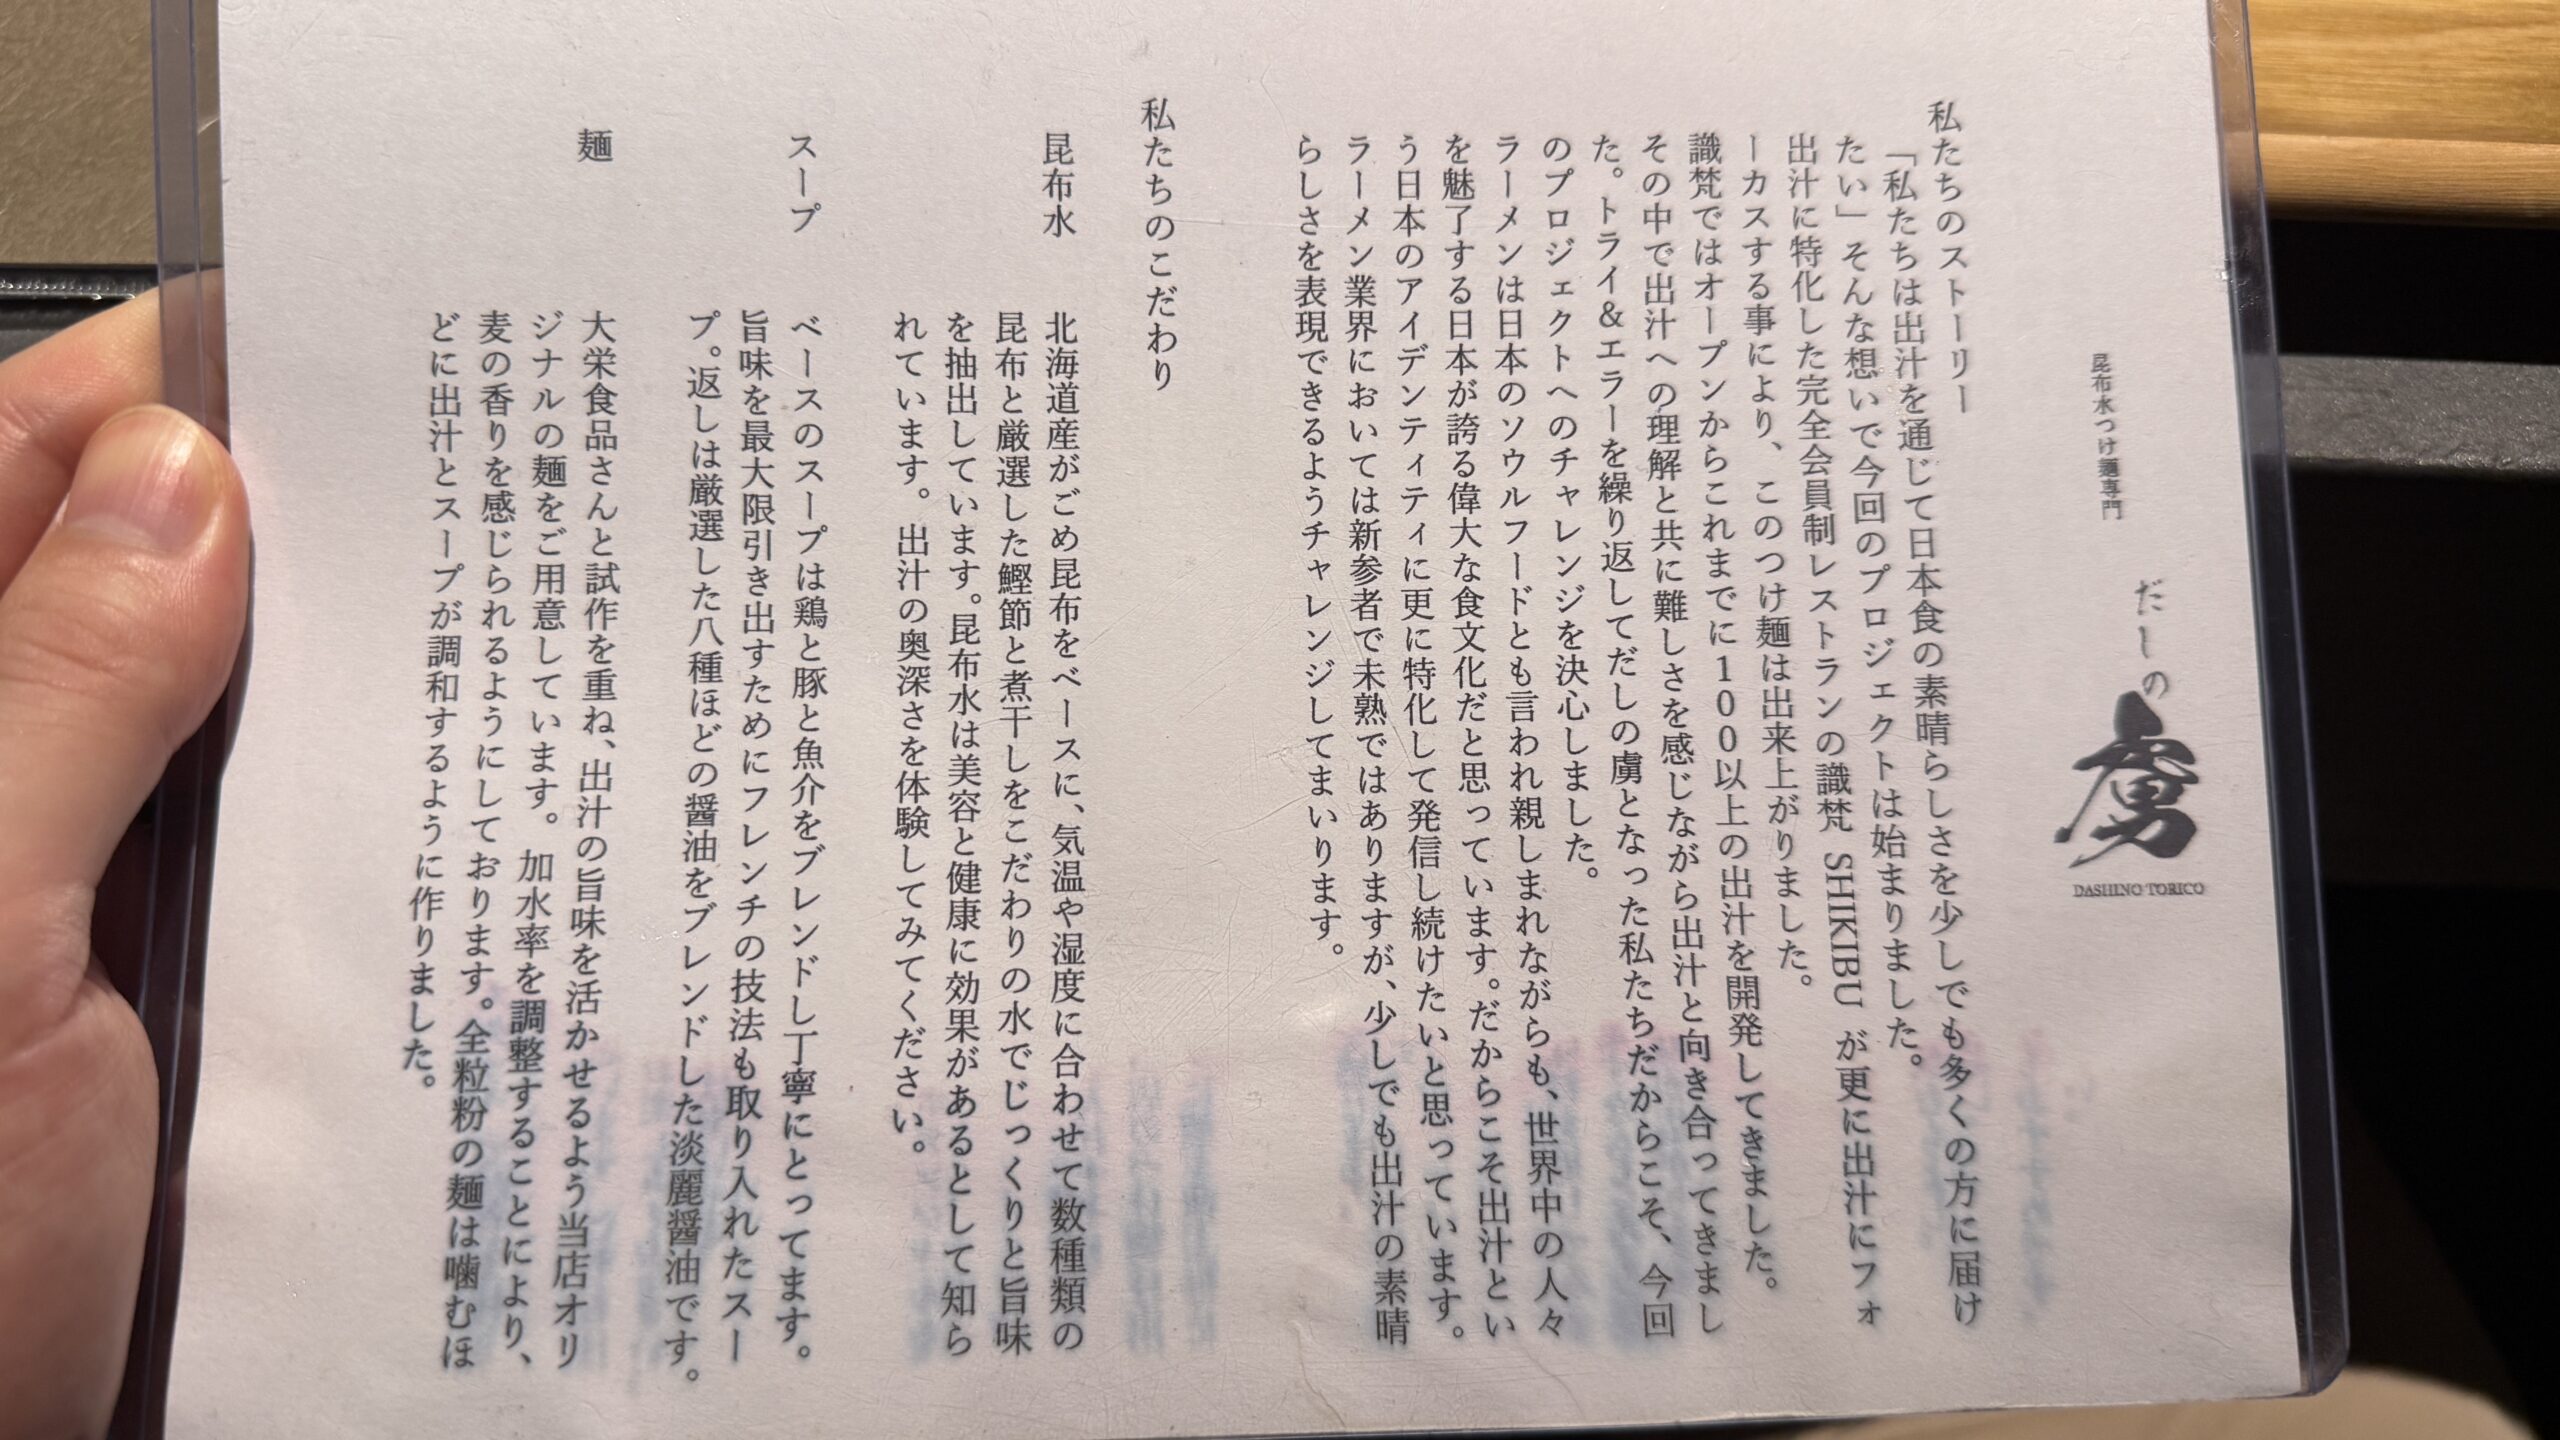 昆布水つけ麺専門
だしの虜
DASHINO TORICO
私たちのストーリー
「私たちは出汁を通じて日本食の素晴らしさを少しでも多くの方に届け
たい」そんな想いで今回のプロジェクトは始まりました。
出汁に特化した完全会員制レストランの識梵 SHIKIBU が更に出汁にフォ
ーカスする事により、このつけ麺は出来上がりました。
識梵ではオープンからこれまでに100以上の出汁を開発してきました。
その中で出汁への理解と共に難しさを感じながら出汁と向き合ってきまし
た。トライ＆エラーを繰り返してだしの虜となった私たちだからこそ、今回
のプロジェクトへのチャレンジを決心しました。
ラーメンは日本のソウルフードとも言われ親しまれながらも、世界中の人々
を魅了する日本が誇る偉大な食文化だと思っています。だからこそ出汁とい
う日本のアイデンティティに更に特化して発信し続けたいと思っています。
ラーメン業界においては新参者で未熟ではありますが、少しでも出汁の素晴
らしさを表現できるようチャレンジしてまいります。
私たちのこだわり
昆布水
北海道産がごめ昆布をベースに、気温や湿度に合わせて数種類の
昆布と厳選した鰹節と煮干しをこだわりの水でじっくりと旨味
を抽出しています。昆布水は美容と健康に効果があるとして知ら
れています。出汁の奥深さを体験してみてください。
スープ
ベースのスープは鶏と豚と魚介をブレンドし丁寧にとってます。
旨味を最大限引き出すためにフレンチの技法も取り入れたスー
プ。返しは厳選した八種ほどの醤油をブレンドした淡麗醤油です。
麺
大栄食品さんと試作を重ね、出汁の旨味を活かせるよう当店オリ
ジナルの麺をご用意しています。加水率を調整することにより、
麦の香りを感じられるようにしております。全粒粉の麺は噛むほ
どに出汁とスープが調和するように作りました。